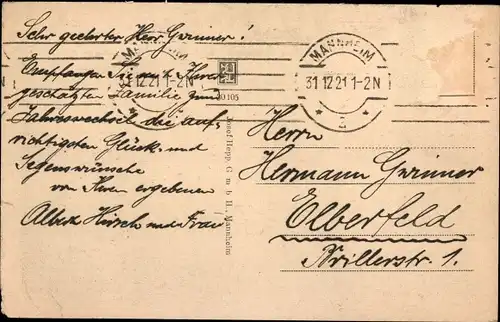 Sehr geehrter Herr Gwinner!
Empfangen Sie und Ihre
geschätzten Familie zum
Jahreswechsel die auf-
richtigsten Glück- und
Segenswünsche
von Ihren ergebenen
Albert Hirsch und Frau
MANNHEIM
31 12 21 1-2 N
MANNHEIM
31 12 21 1-2 N
10105
Josef Hepp, G. m. b. H., Mannheim
Herrn
Hermann Gwinner
Elberfeld
Brillerstr 1.